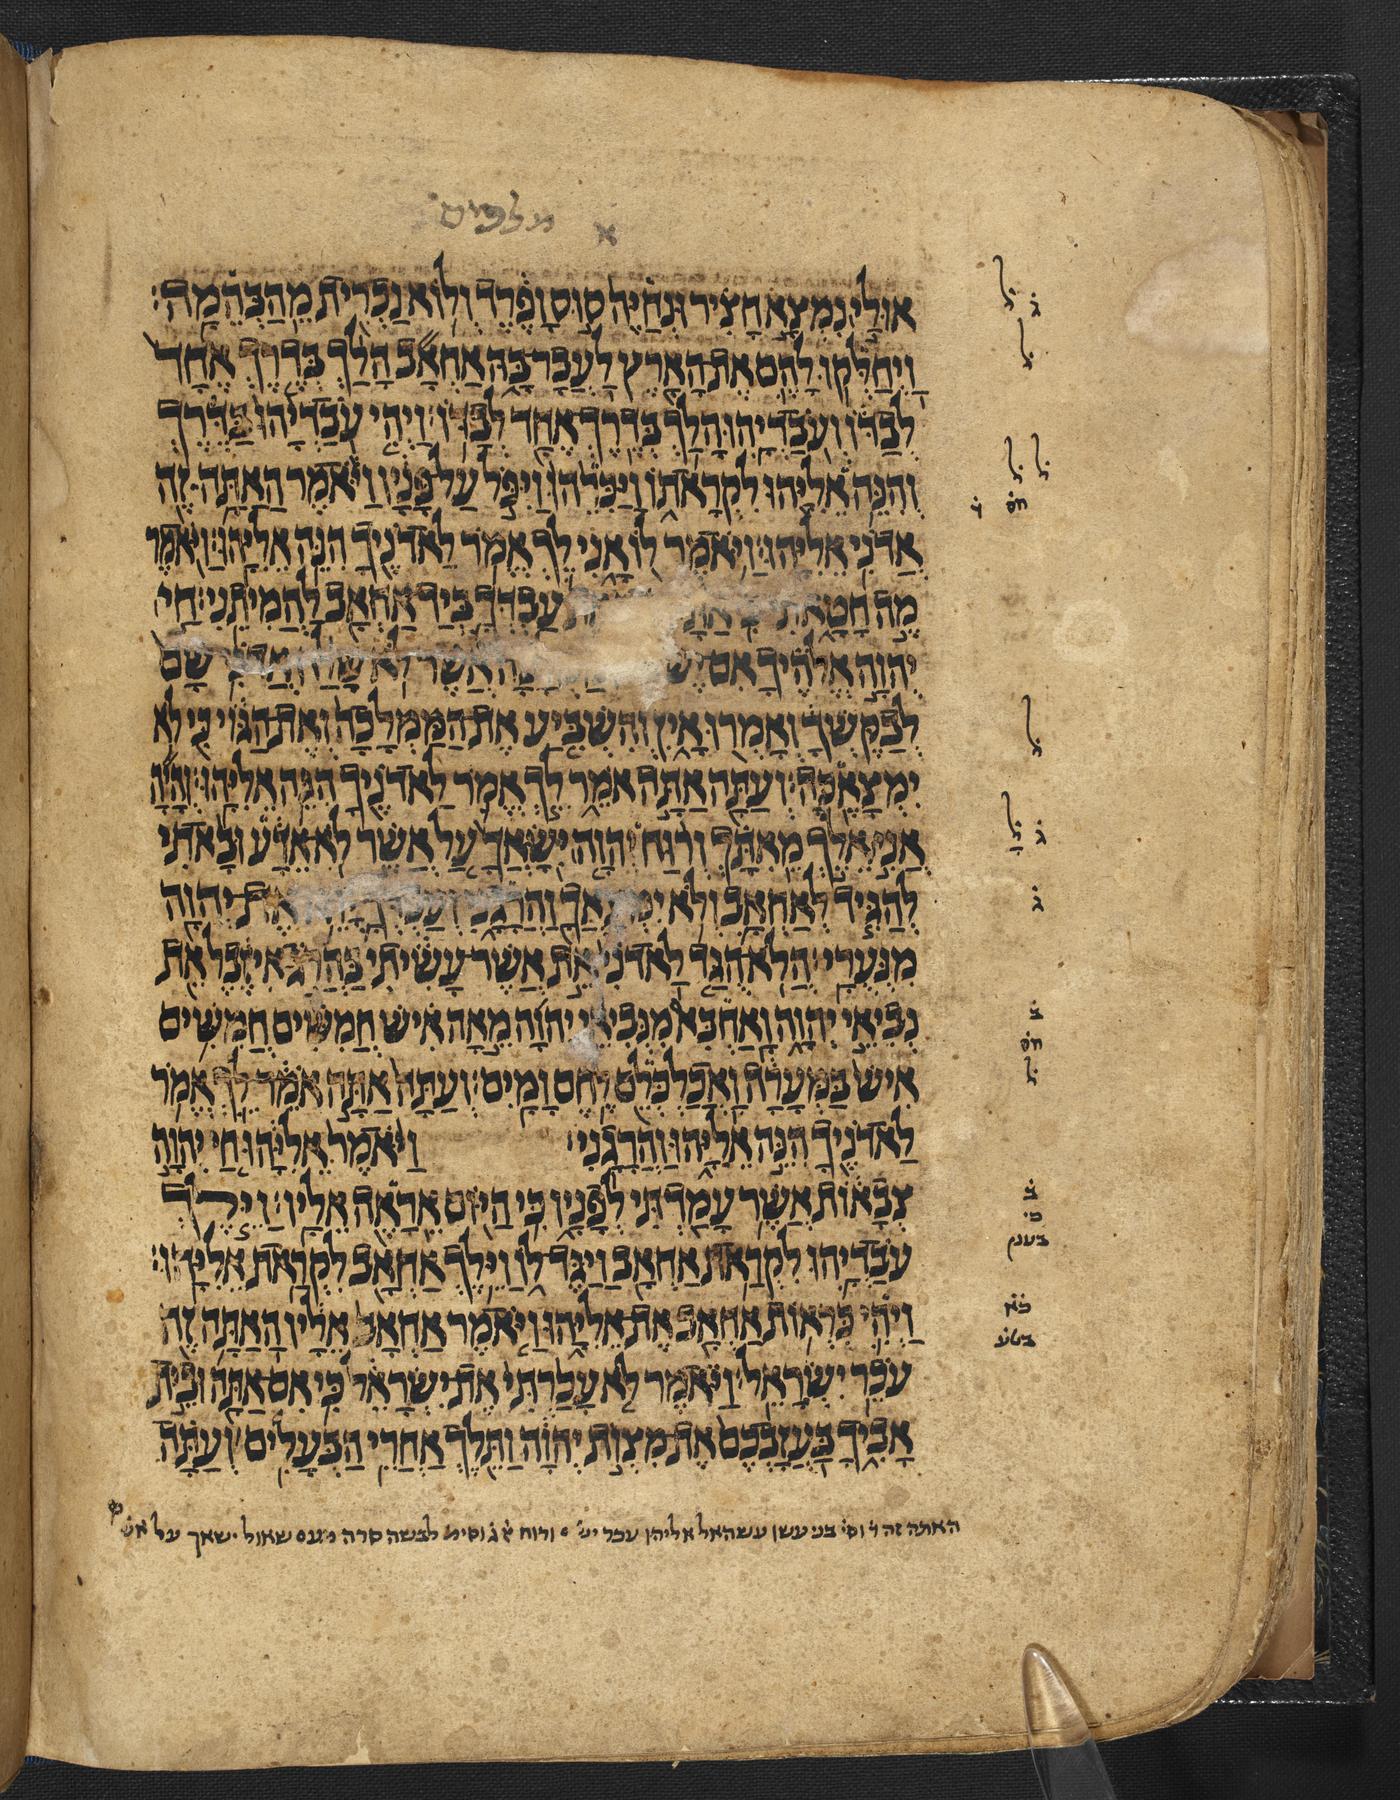 א מלכים
אוּלַי נִמְצָא חָצִיר וּנְחַיֶּה סוּס וָפֶרֶד וְלוֹא נַכְרִית מֵהַבְּהֵמָה׃
וַיְחַלְּקוּ לָהֶם אֶת הָאָרֶץ לַעֲבָר בָּהּ אַחְאָב הָלַךְ בְּדֶרֶךְ אֶחָד
לְבַדּוֹ וְעֹבַדְיָהוּ הָלַךְ בְּדֶרֶךְ אֶחָד לְבַדּוֹ׃ וַיְהִי עֹבַדְיָהוּ בַּדֶּרֶךְ
וְהִנֵּה אֵלִיָּהוּ לִקְרָאתוֹ וַיַּכִּרֵהוּ וַיִּפֹּל עַל פָּנָיו וַיֹּאמֶר הַאַתָּה זֶה
אֲדֹנִי אֵלִיָּהוּ׃ וַיֹּאמֶר לוֹ אָנִי לֵךְ אֱמֹר לַאדֹנֶיךָ הִנֵּה אֵלִיָּהוּ׃ וַיֹּאמֶר
מֶה חָטָאתִי עַבְדְּךָ בְּיַד אַחְאָב לַהֲמִיתֵנִי׃ חַי
יְהוָה אֱלֹהֶיךָ אִם אֲשֶׁר לֹא שָׁלַח אֲדֹנִי שָׁם
לְבַקֶּשְׁךָ וְאָמְרוּ אָיִן וְהִשְׁבִּיעַ אֶת הַמַּמְלָכָה וְאֶת הַגּוֹי כִּי לֹא
יִמְצָאֶכָּה׃ וְעַתָּה אַתָּה אֹמֵר לֵךְ אֱמֹר לַאדֹנֶיךָ הִנֵּה אֵלִיָּהוּ׃ וְהָיָה
אֲנִי אֵלֵךְ מֵאִתָּךְ וְרוּחַ יְהוָה יִשָּׂאֲךָ עַל אֲשֶׁר לֹא אֵדָע וּבָאתִי
לְהַגִּיד לְאַחְאָב וְלֹא יִמְצָאֲךָ וַהֲרָגָנִי וְעַבְדְּךָ אֶת יְהוָה
מִנְּעֻרָי׃ הֲלֹא הֻגַּד לַאדֹנִי אֵת אֲשֶׁר עָשִׂיתִי בַּהֲרֹג אִיזֶבֶל אֵת
נְבִיאֵי יְהוָה וָאַחְבִּא מִנְּבִיאֵי יְהוָה מֵאָה אִישׁ חֲמִשִּׁים חֲמִשִּׁים
אִישׁ בַּמְּעָרָה וָאֲכַלְכְּלֵם לֶחֶם וָמָיִם׃ וְעַתָּה אַתָּה אֹמֵר לֵךְ אֱמֹר
לַאדֹנֶיךָ הִנֵּה אֵלִיָּהוּ וַהֲרָגָנִי׃ וַיֹּאמֶר אֵלִיָּהוּ חַי יְהוָה
צְבָאוֹת אֲשֶׁר עָמַדְתִּי לְפָנָיו כִּי הַיּוֹם אֵרָאֶה אֵלָיו׃ וַיֵּלֶךְ
עֹבַדְיָהוּ לִקְרַאת אַחְאָב וַיַּגֶּד לוֹ וַיֵּלֶךְ אַחְאָב לִקְרַאת אֵלִיָּהוּ׃
וַיְהִי כִּרְאוֹת אַחְאָב אֶת אֵלִיָּהוּ וַיֹּאמֶר אַחְאָב אֵלָיו הַאַתָּה זֶה
עֹכֵר יִשְׂרָאֵל׃ וַיֹּאמֶר לֹא עָכַרְתִּי אֶת יִשְׂרָאֵל כִּי אִם אַתָּה וּבֵית
אָבִיךָ בַּעֲזָבְכֶם אֶת מִצְוֹת יְהוָה וַתֵּלֶךְ אַחֲרֵי הַבְּעָלִים׃ וְעַתָּה
ג ל
ל
ל ל
חס
ל
ג ל
ג
ב
חס
ל
ב
האתה זה בני עשו עשהאל אליהו עכר יש ורוח לבשה סרה שאול ישאך על אש